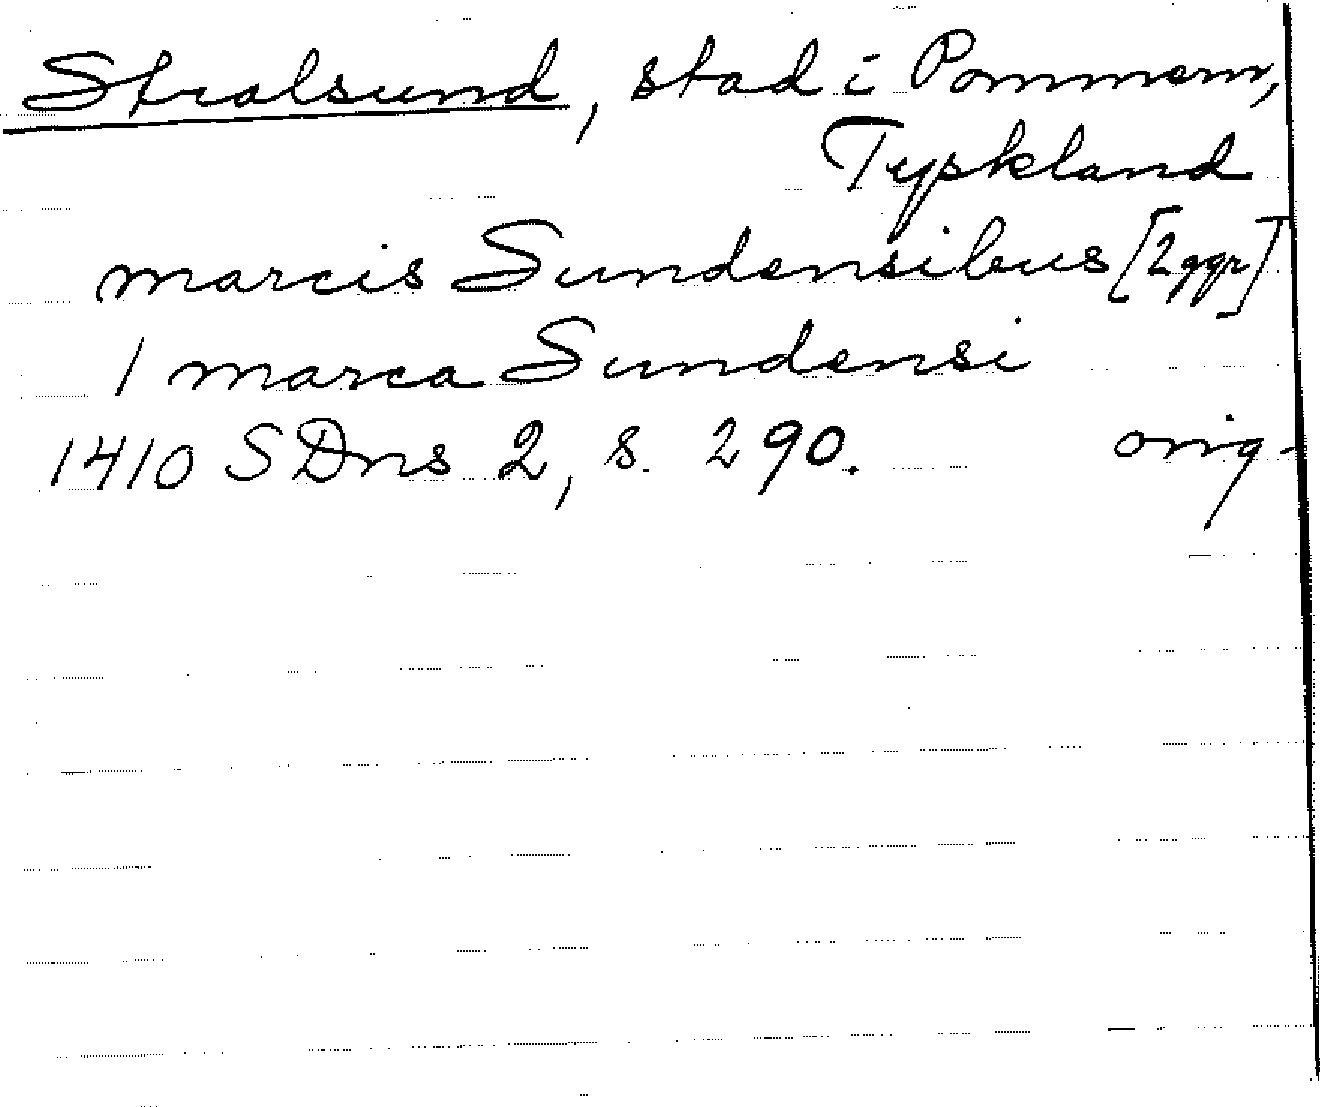 Stralsund, stad i Pommern,
Tyskland
marcis Sundensibus [2 ggr]
1 marca Sundensi
1410 SDns 2, s. 290. orig.